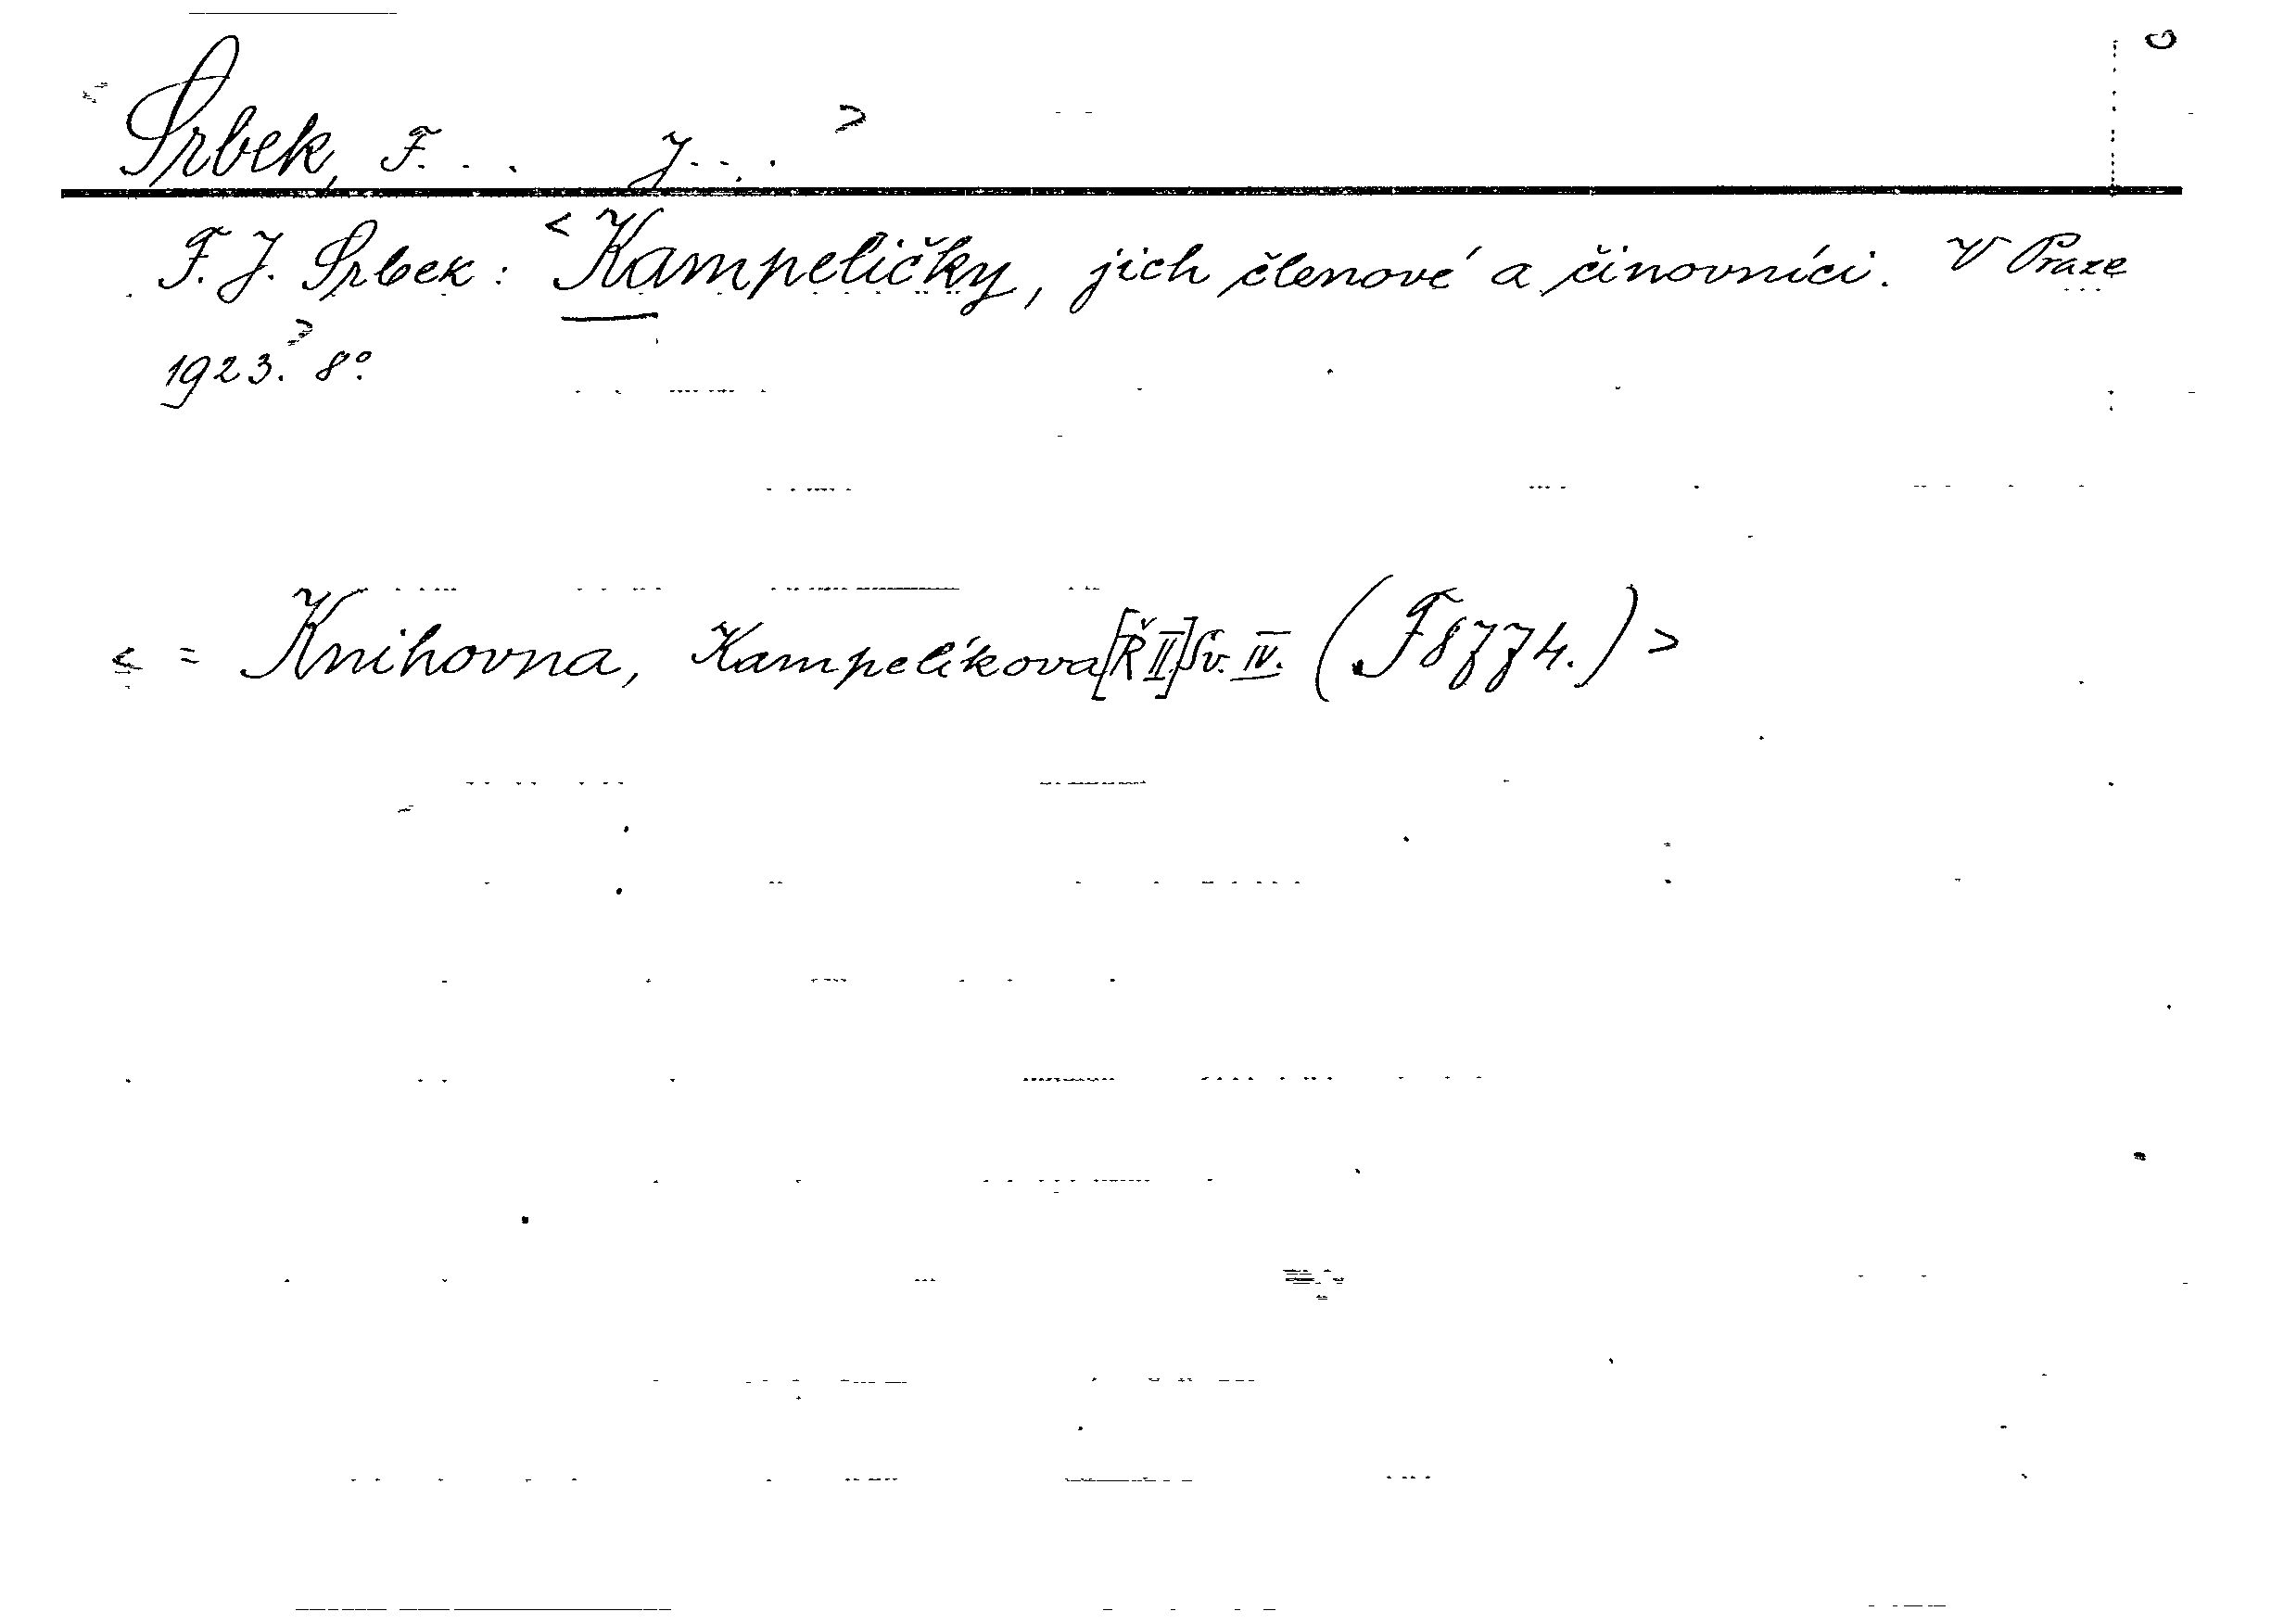 Srbek, F... J... >
F. J. Srbek: <Kampeličky, jich členové a činovníci. V Praze
1923.> 8°.
< = Knihovna, Kampelíkova [Ř II.] Sv. IV. (F 8774.) >